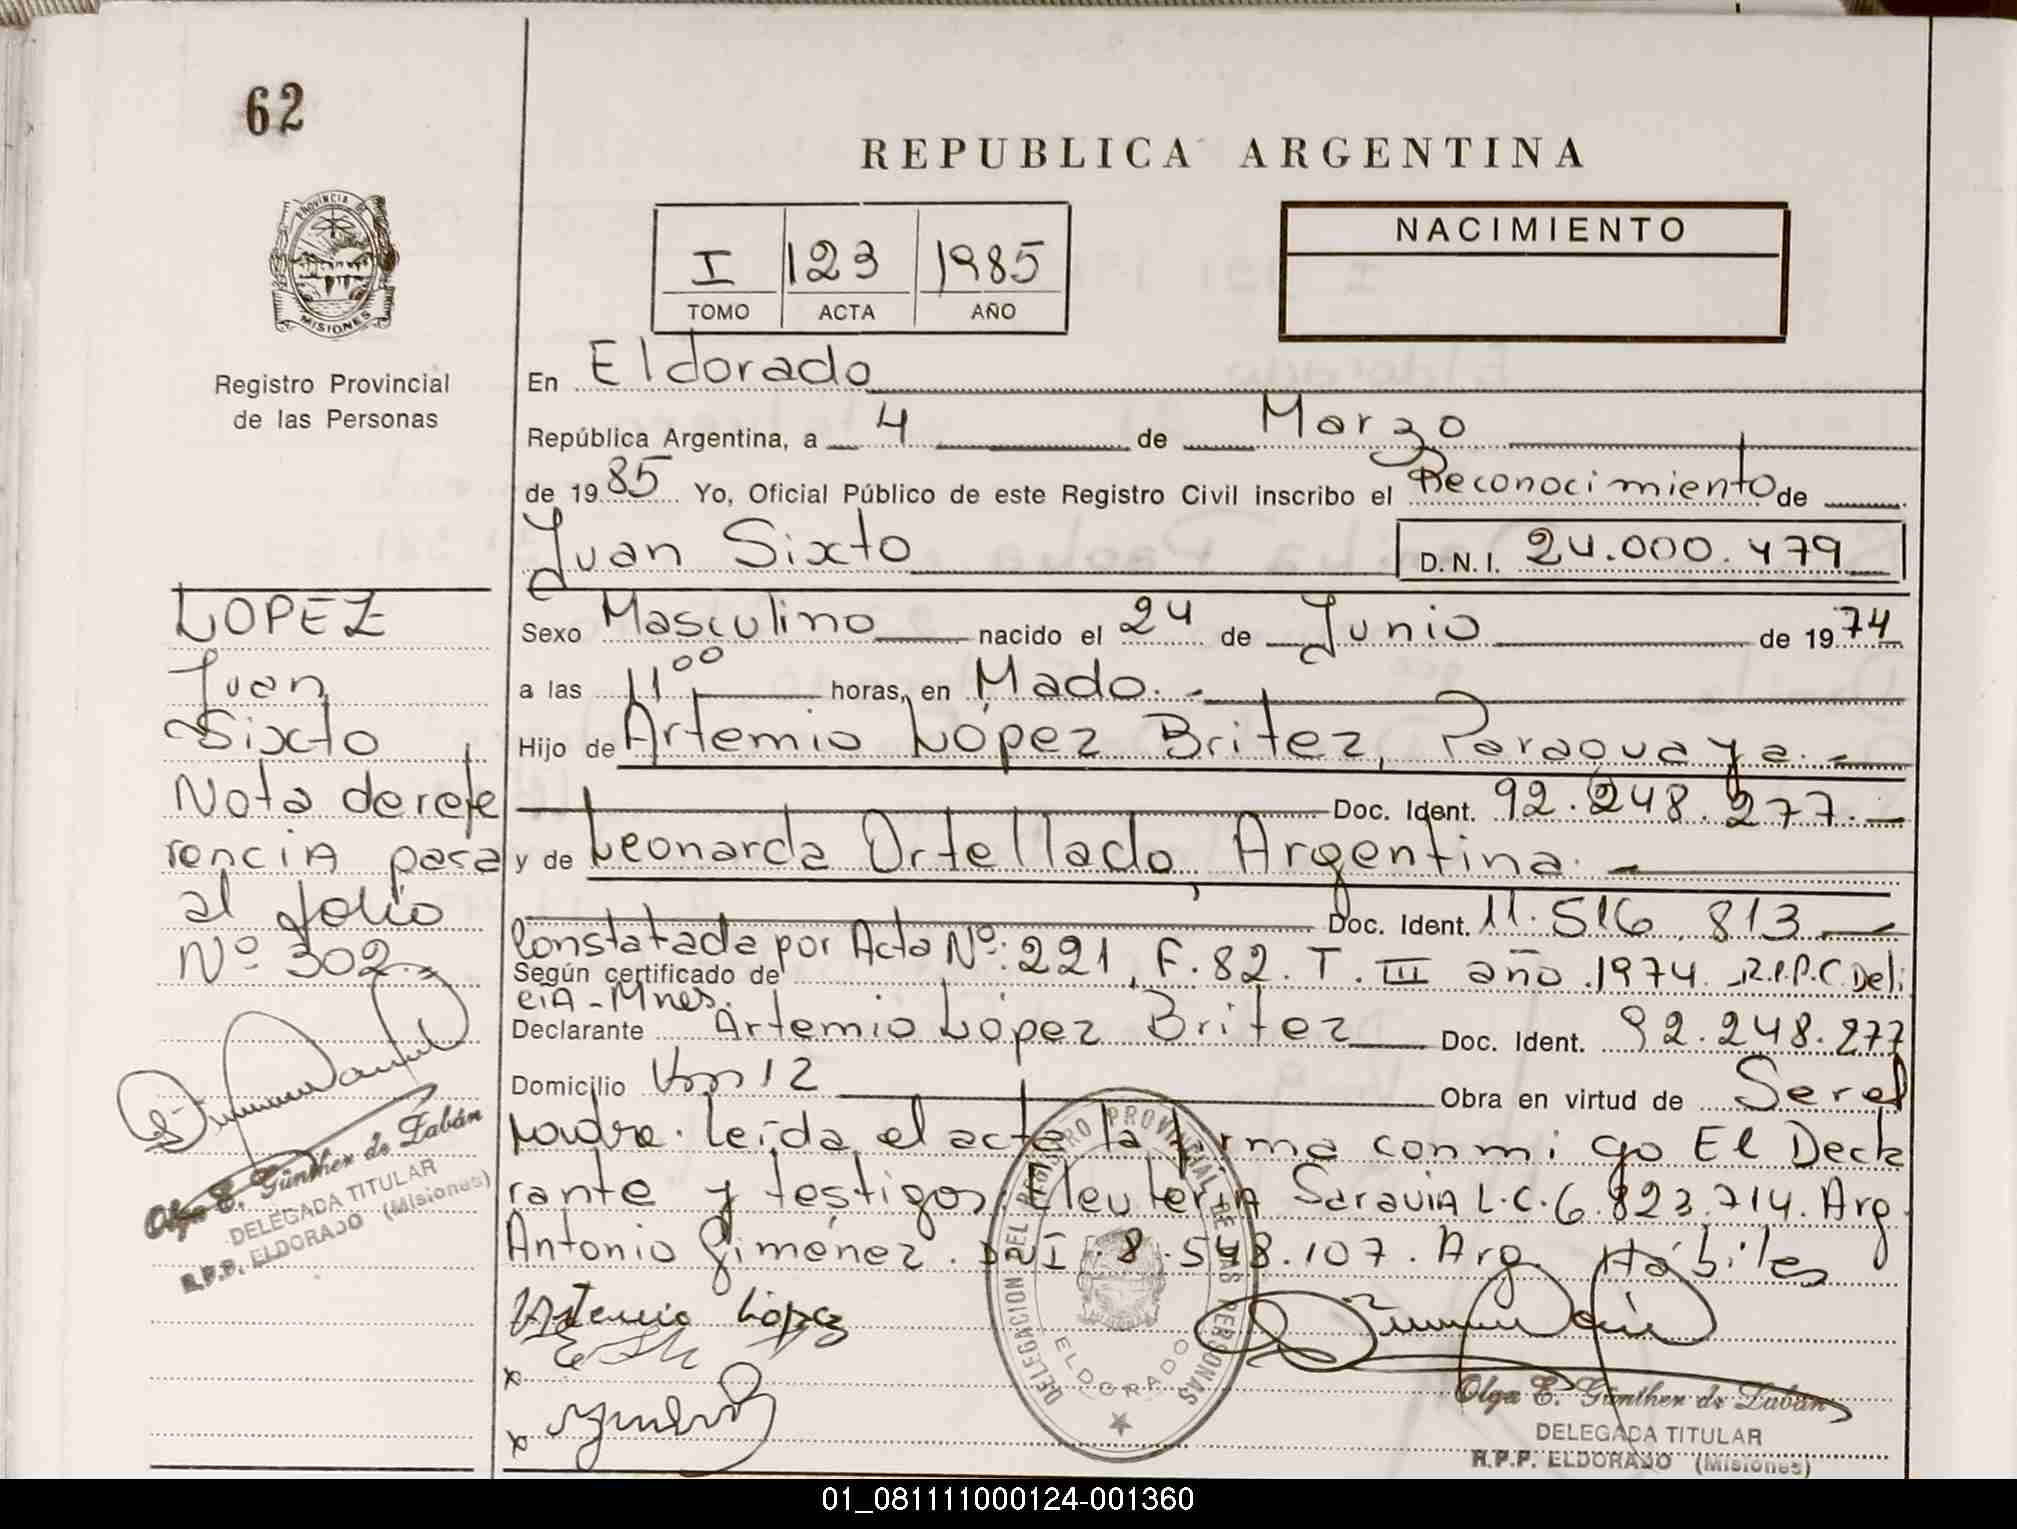 62
REPUBLICA ARGENTINA
PROVINCIA DE
MISIONES
Registro Provincial
de las Personas
I 123 1985
TOMO ACTA AÑO
NACIMIENTO
En Eldorado
República Argentina, a 4 de Marzo
de 1985 Yo, Oficial Público de este Registro Civil inscribo el Reconocimiento de
Juan Sixto D.N.I. 24.000.479
Sexo Masculino nacido el 24 de Junio de 1974
a las 11⁰⁰ horas, en Mado.
Hijo de Artemio López Britez, Paraguaya.
Doc. Ident. 92.248.277.
y de Leonarda Ortellado, Argentina.
Doc. Ident. 11.516.813
Constatada por Acta Nº: 221, F. 82. T. III año 1974. R.P.P.C. Deli
Según certificado de
cia - Mnes.
Declarante Artemio López Britez Doc. Ident. 92.248.277
Domicilio Km 12 Obra en virtud de Ser el
padre. Leída el acta la firma conmigo El Decla
rante y testigos: Eleuteria Saravia L.C. 6.823.714. Arg.
Antonio Giménez. DNI. 8.548.107. Arg. Hábiles
Artemio López
x
x
DELEGACION DEL REGISTRO PROVINCIAL DE LAS PERSONAS
ELDORADO
Olga E. Günther de Zabán
DELEGADA TITULAR
R.P.P. ELDORADO (Misiones)
LOPEZ
Juan
Sixto
Nota de refe
rencia pasa
al folio
Nº 302.
Olga E. Günther de Zabán
DELEGADA TITULAR
R.P.P. ELDORADO (Misiones)
01_081111000124-001360